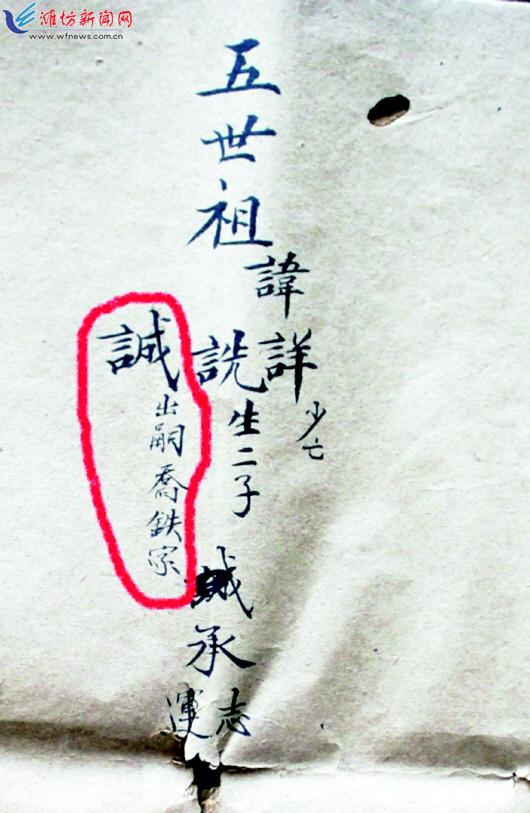 潍坊新闻网
www.wfnews.com.cn
五世祖
諱
詳少亡
詵生二子
承
志
運
誠出嗣喬鉄宗